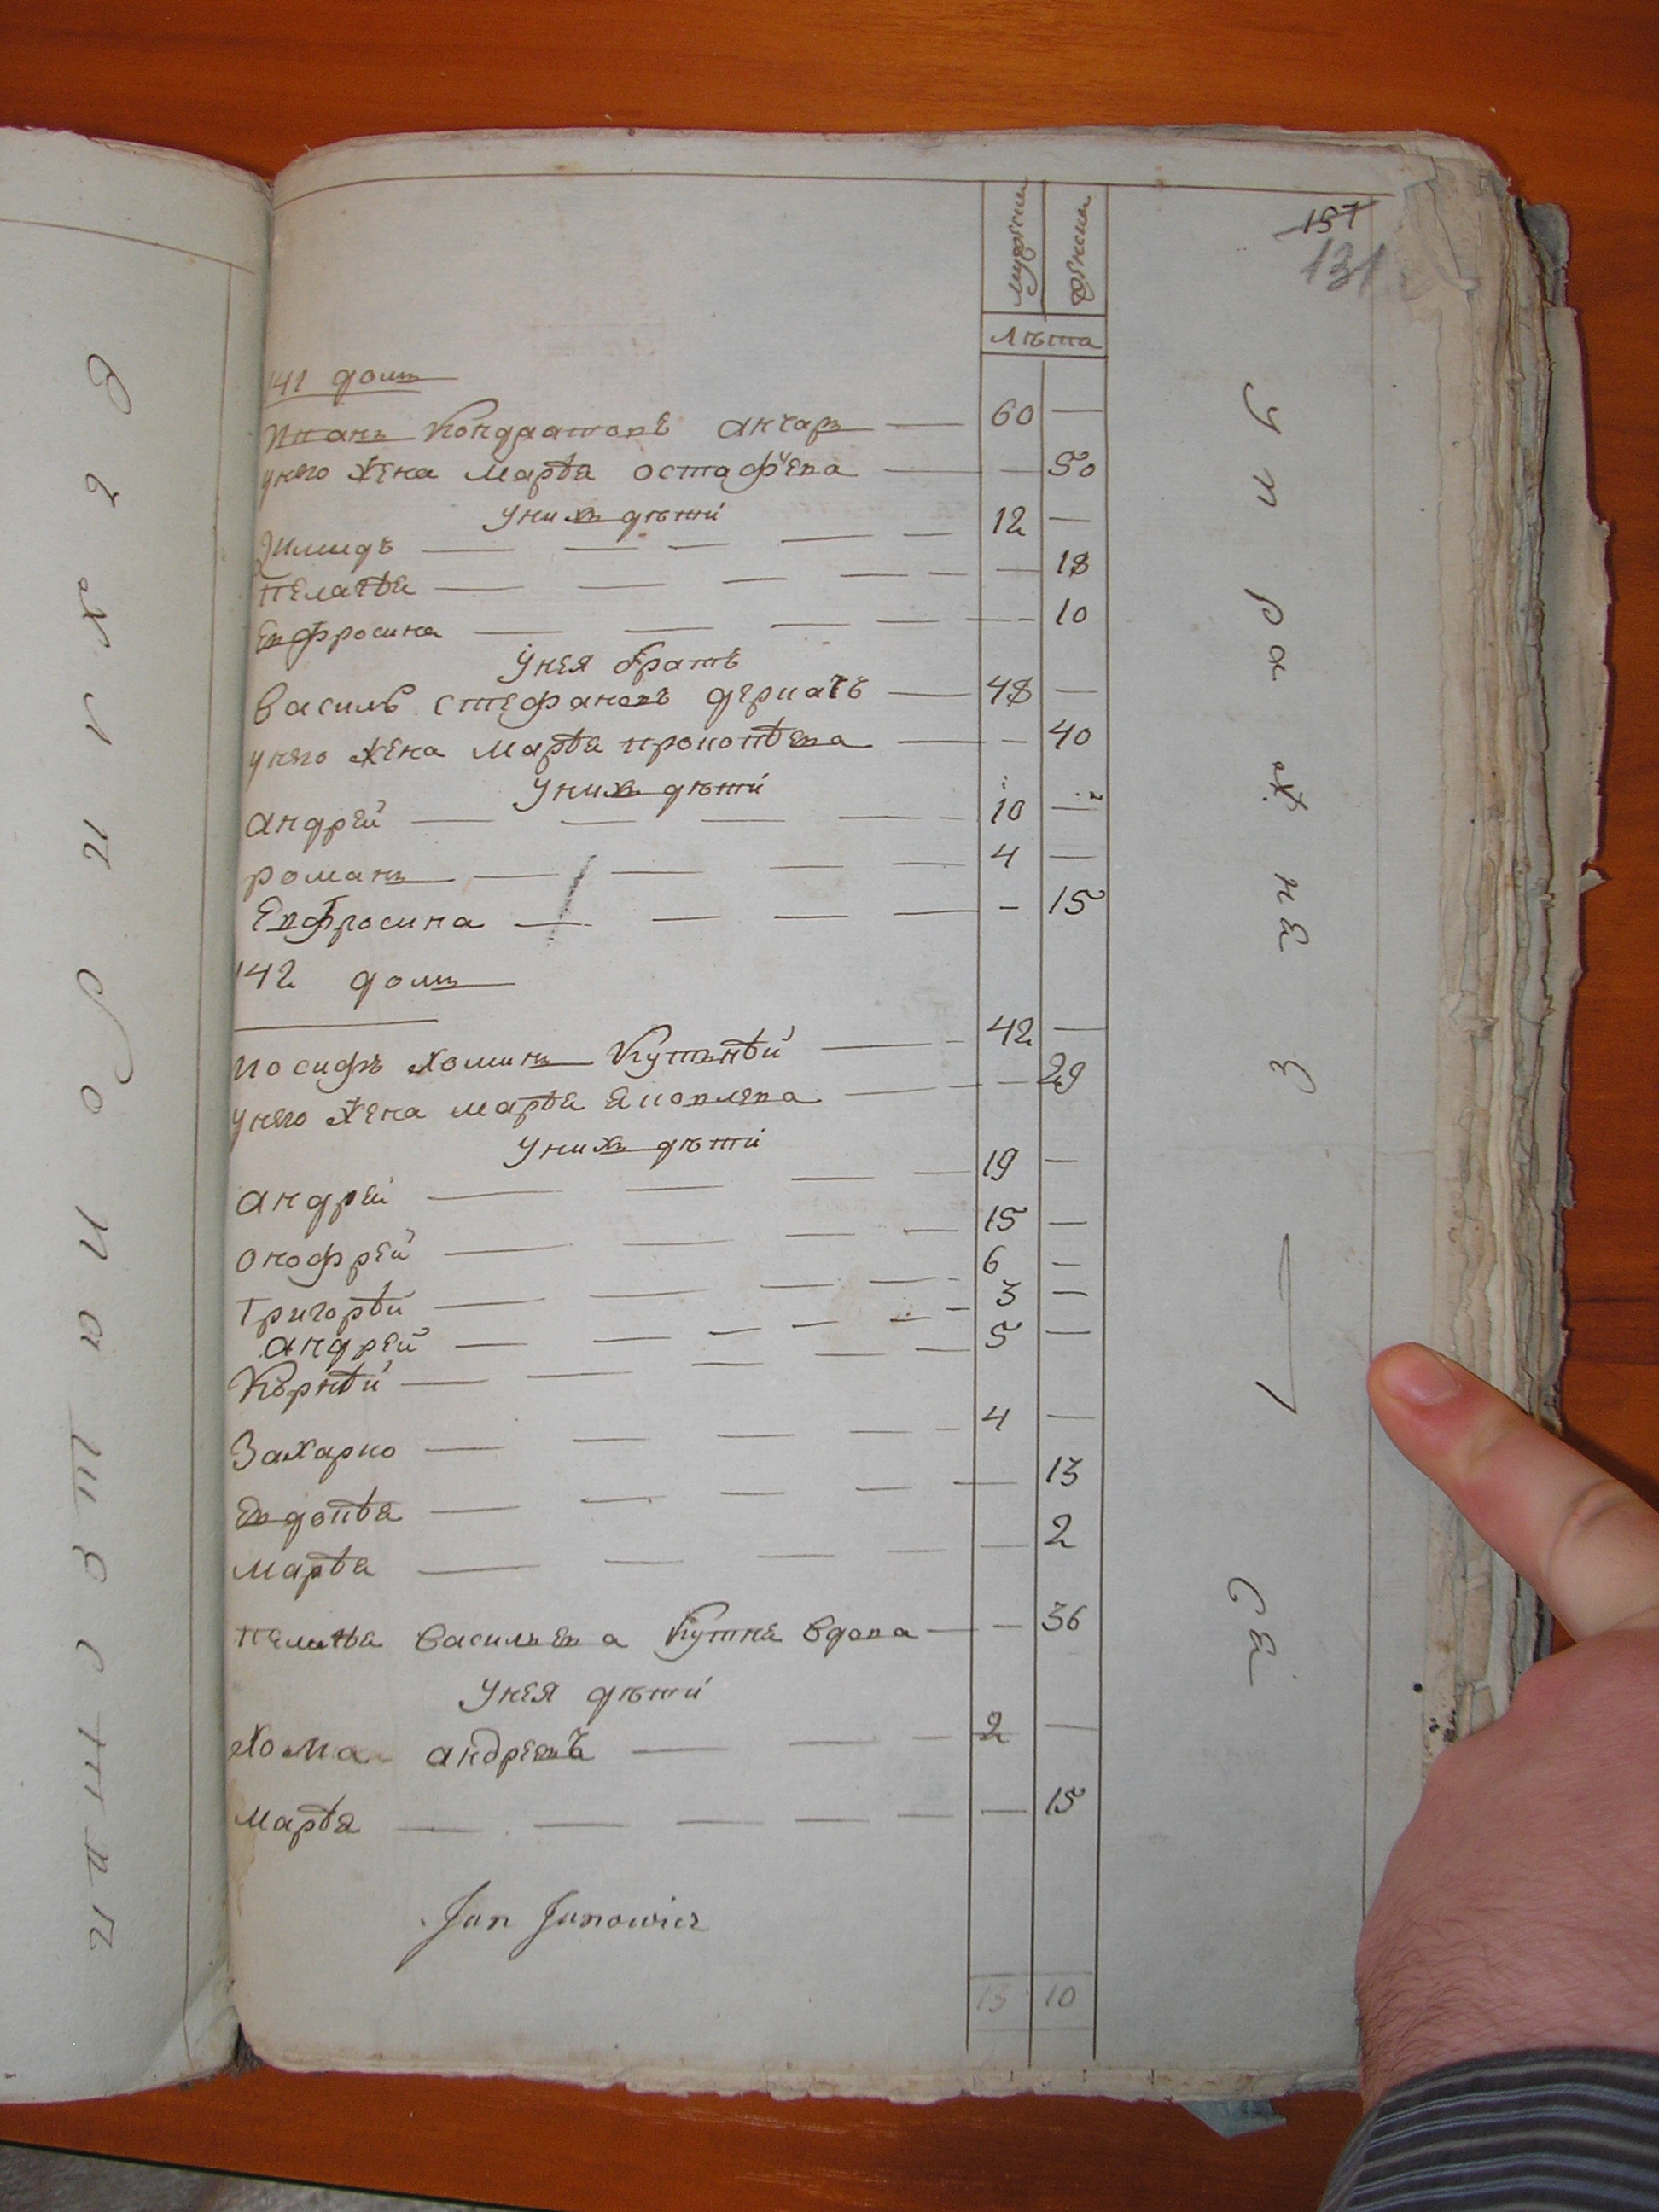 мужеска женска
157
131
лѣта
141 домъ
Иванъ Кондратовъ анчаръ — 60 —
унего жена Марья остафьева — — 50
унихъ дѣти
Димидъ — 12 —
Пелагея — — 18
Евфросина — — 10
унея братъ
Василь Стефановъ дернать — 48 —
унего жена Марья прокопьева — — 40
унихъ дѣти
андрей — 10 —
романъ — 4 —
Евфросина — — 15
142 домъ
Иосифъ Хоминъ Кутний — 42 —
унего жена марья яковлева — — 29
унихъ дѣти
андрей — 19 —
онофрей — 15 —
Григорей — 6 —
андрей — 3 —
Корней — 5 —
Захарко — 4 —
Евдокея — — 13
Марья — — 2
Пелагея Васильева Кутня вдова — — 36
унея дѣти
Хома андреевъ — 2 —
Марья — — 15
Jan Janowicz
15 10